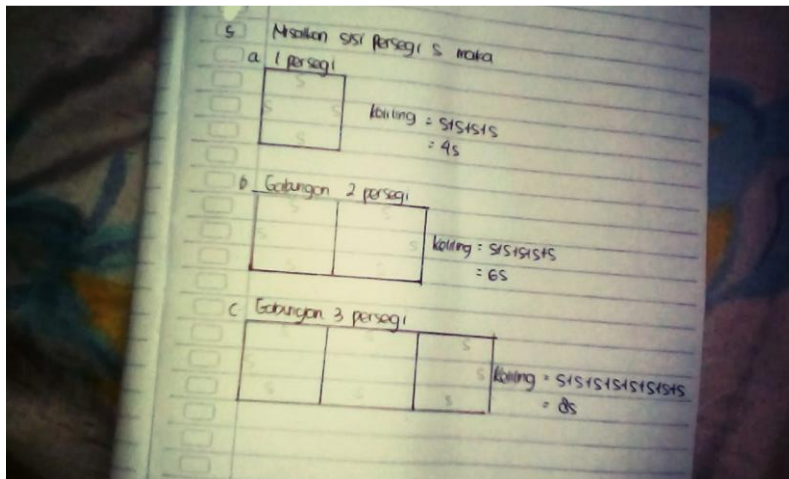 5 Misalkan sisi persegi s maka
a 1 persegi
s
s s
s
keliling = s+s+s+s
= 4s
b Gabungan 2 persegi
s s
s s
s s
keliling = s+s+s+s+s
= 6s
c Gabungan 3 persegi
s s s
s s
s s s
keliling = s+s+s+s+s+s+s+s
= 8s